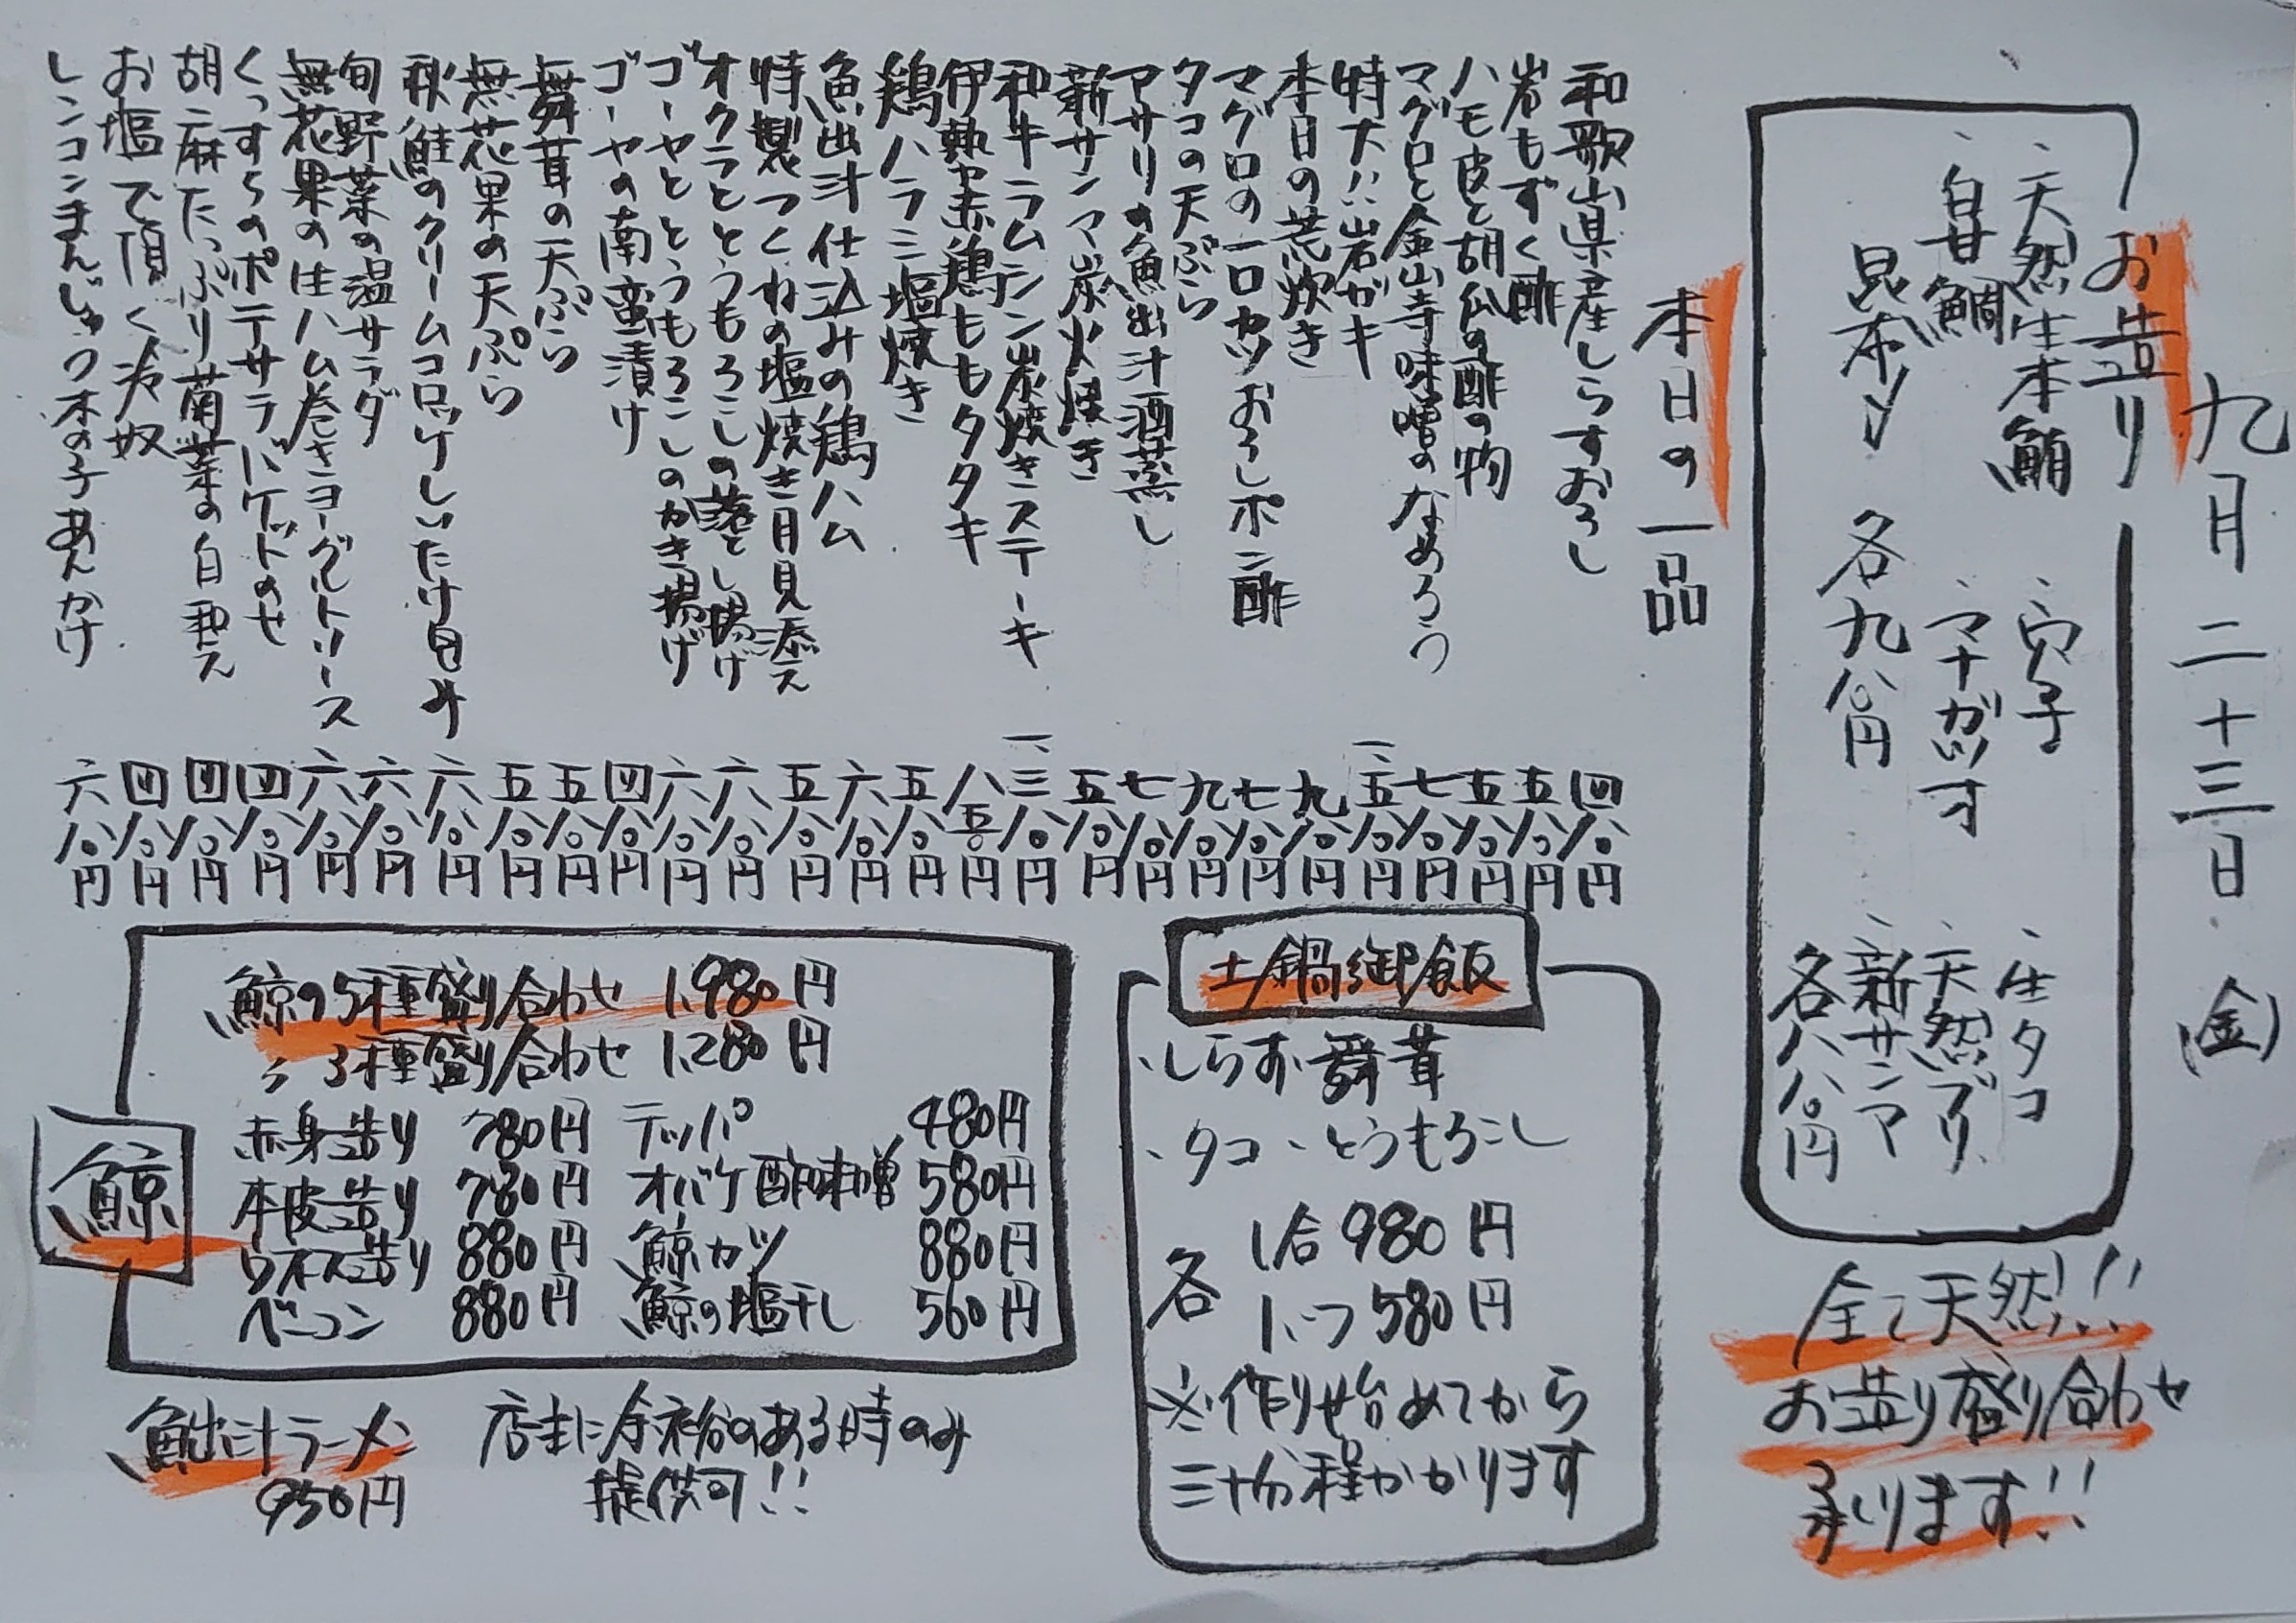 九月二十三日(金)
お造り
、天然生本鮪
、穴子
、生タコ
、白甘鯛
、マナガツオ
、天然ブリ
昆布〆
各九八〇円
、新サンマ
各八八〇円
全て天然!!
お造り盛り合わせ
承ります!!
本日の一品
和歌山県産しらすおろし 四八〇円
岩もずく酢 五八〇円
ハモ皮と胡瓜の酢の物 五八〇円
マグロと金山寺味噌のなめろう 七八〇円
特大!!岩ガキ 一、五八〇円
本日の荒炊き 九八〇円
マグロの一口カツおろしポン酢 七八〇円
タコの天ぷら 九八〇円
アサリの魚出汁酒蒸し 七八〇円
新サンマ炭火焼き 五八〇円
和牛ラムシン炭焼きステーキ 一、三八〇円
伊勢赤鶏ももタタキ 八五〇円
鶏ハラミ塩焼き 五八〇円
魚出汁仕込みの鶏ハム 六八〇円
特製つくねの塩焼き月見添え 五八〇円
オクラととうもろこしの落とし揚げ 六八〇円
ゴーヤととうもろこしのかき揚げ 六八〇円
ゴーヤの南蛮漬け 四八〇円
舞茸の天ぷら 五八〇円
無花果の天ぷら 五八〇円
秋鮭のクリームコロッケしいたけ包み 六八〇円
旬野菜の温サラダ 六八〇円
無花果の生ハム巻きヨーグルトソース 六八〇円
くっすらのポテサラバゲットのせ 四八〇円
胡麻たっぷり菊菜の白和え 四八〇円
お塩で頂く冷奴 四八〇円
レンコンまんじゅう木の子あんかけ 六八〇円
土鍋御飯
、しらす舞茸
、タコ、とうもろこし
各 1合 980円
1/2つ 580円
※作り始めてから
三十分程かかります
鯨
鯨の5種盛り合わせ 1,980円
〃 3種盛り合わせ 1,280円
赤身造り 780円 テッパ 480円
本皮造り 780円 オバケ酢味噌 580円
ウネス造り 880円 鯨カツ 880円
ベーコン 880円 鯨の塩干し 560円
魚出汁ラーメン
950円
店主に余裕のある時のみ
提供可!!